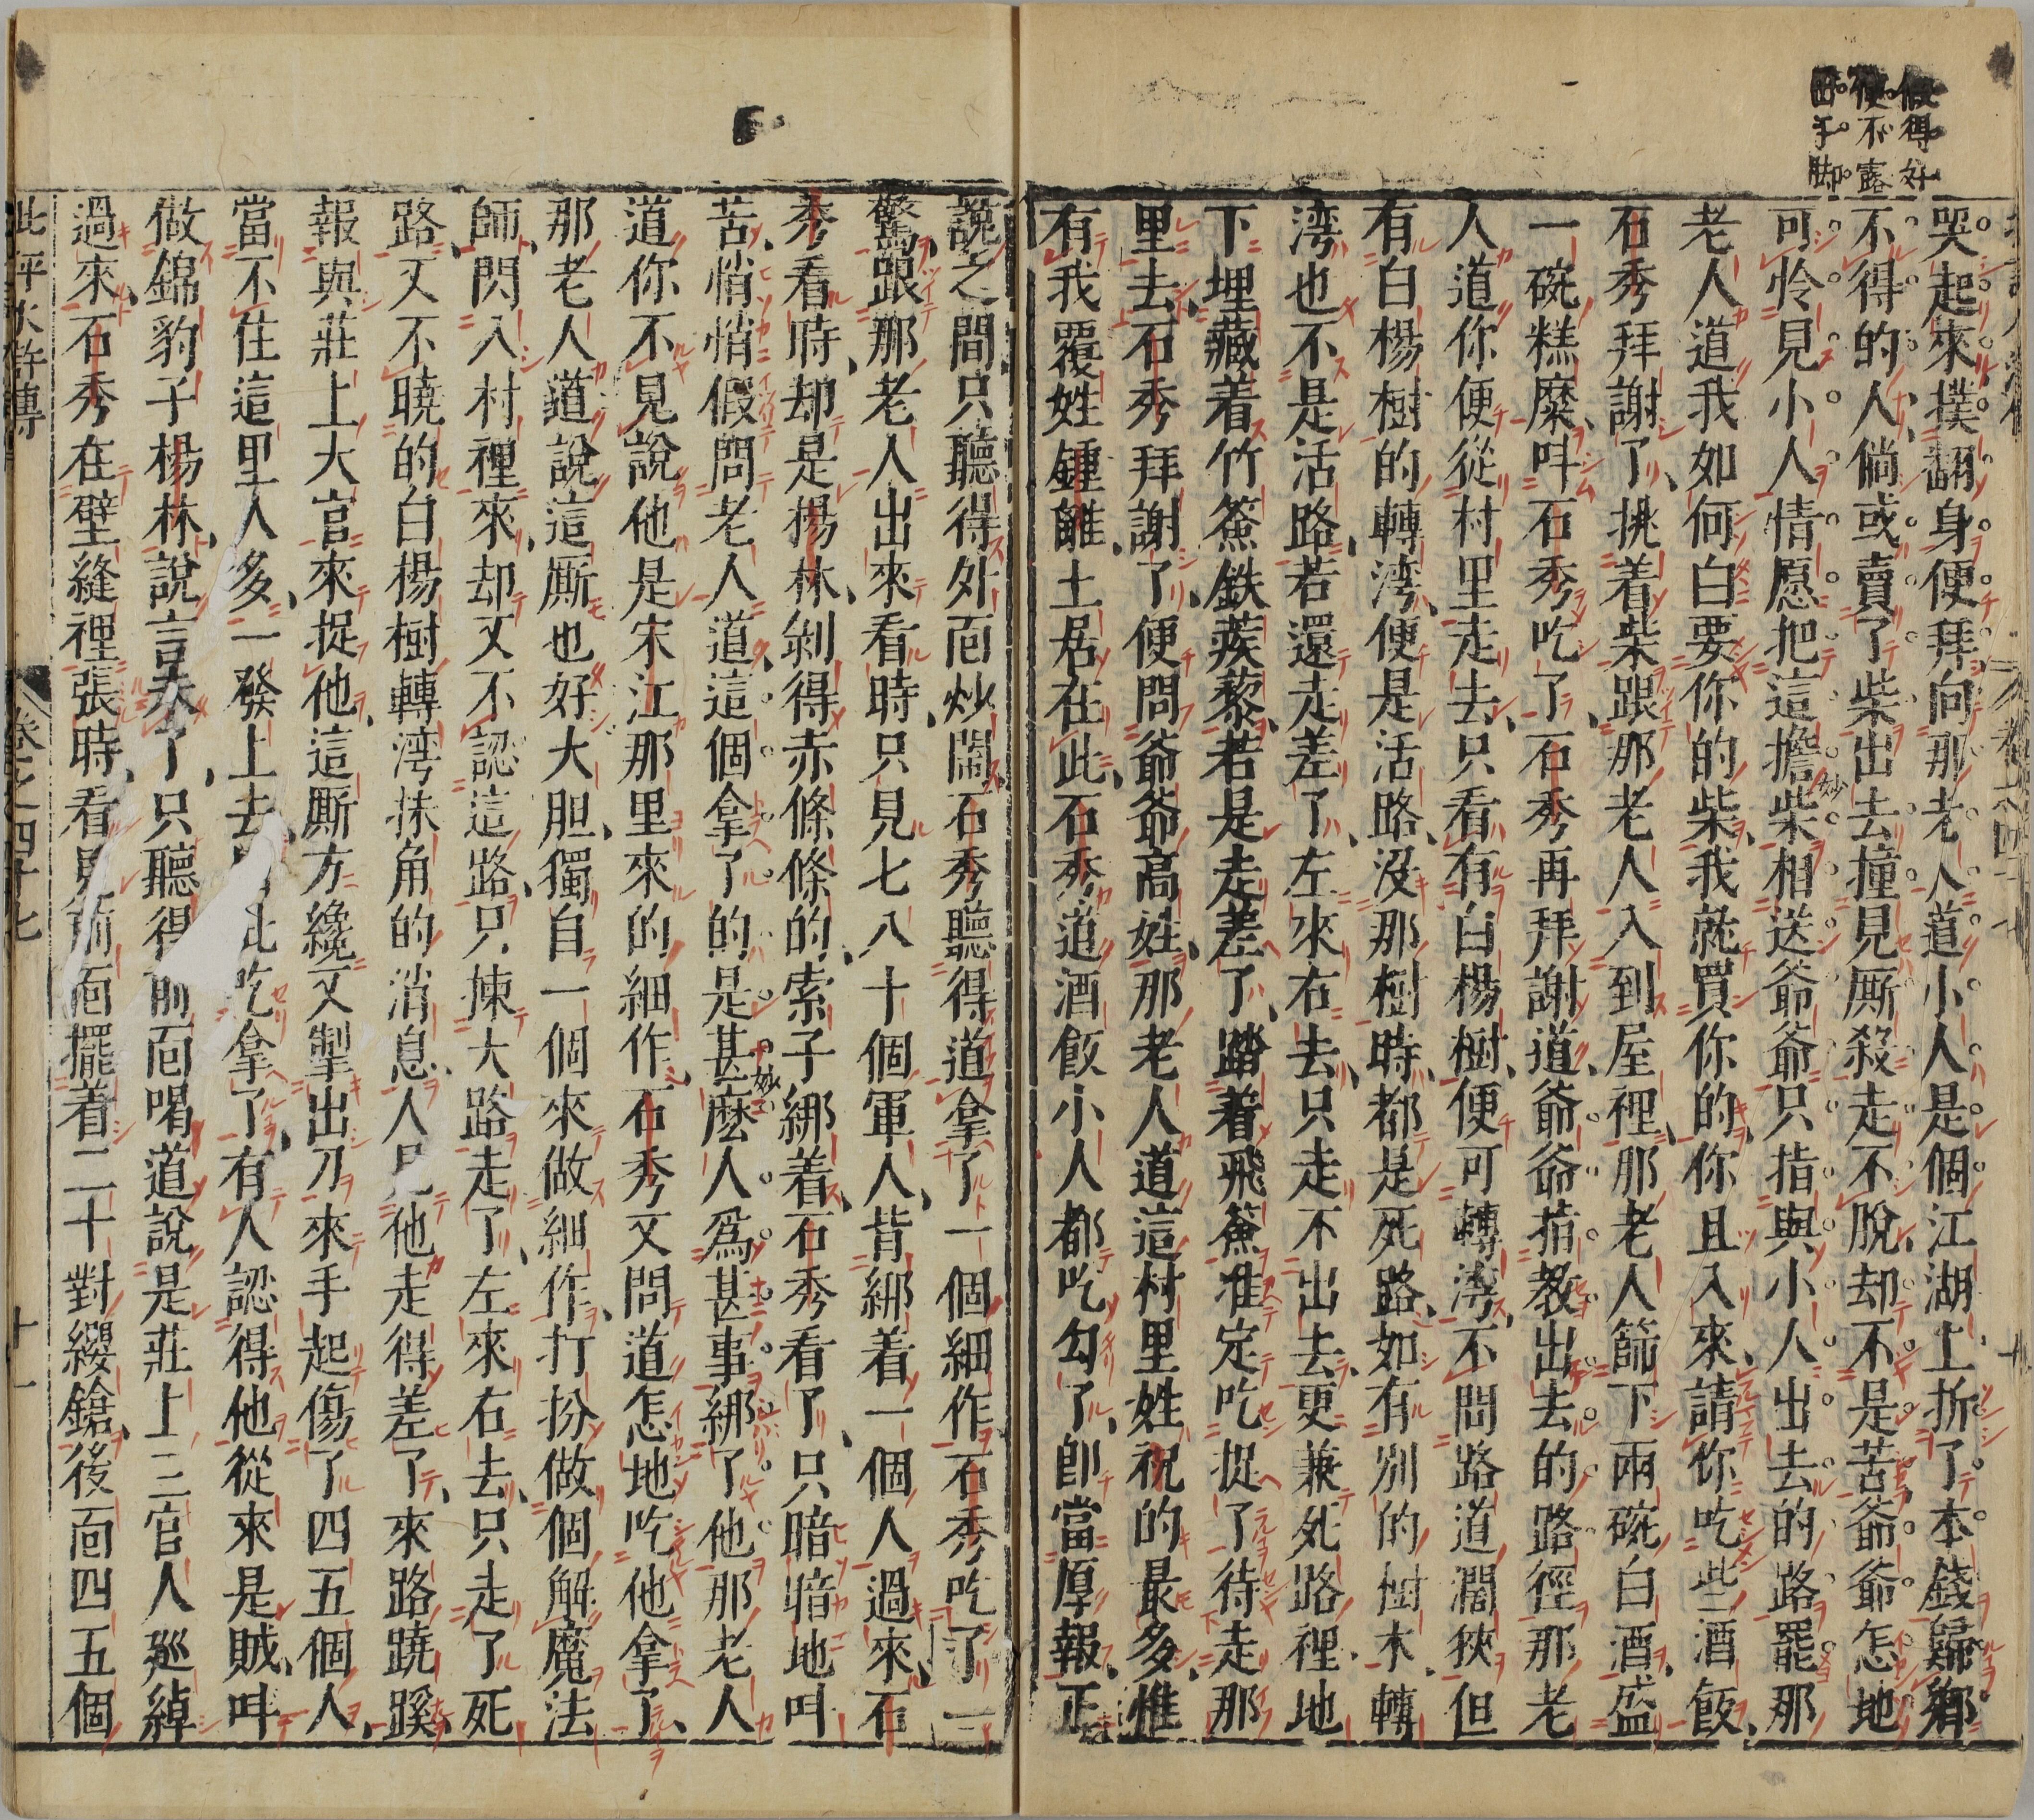 假得好
便不露
出手脚
哭起來撲翻身便拜向那老人道小人是個江湖上折了本錢歸鄉
不得的人倘或賣了柴出去撞見厮殺走不脫却不是苦爺爺怎地
可怜見小人情愿把這擔柴相送爺爺只指與小人出去的路罷那
妙
老人道我如何白要你的柴我就買你的你且入來請你吃些酒飯
石秀拜謝了挑着柴跟那老人入到屋裡那老人篩下兩碗白酒盛
一碗糕糜呌石秀吃了石秀再拜謝道爺爺指教出去的路徑那老
人道你便從村里走去只看有白楊樹便可轉湾不問路道濶狹但
有白楊樹的轉湾便是活路沒那樹時都是死路如有別的樹木轉
湾也不是活路若還走差了左來右去只走不出去更兼死路裡地
下埋藏着竹簽鉄蒺藜若是走差了踏着飛簽准定吃捉了待走那
里去石秀拜謝了便問爺爺高姓那老人道這村里姓祝的最多惟
有我覆姓鍾離土居在此石秀道酒飯小人都吃勾了卽當厚報正
說之間只聽得外靣炒鬧石秀聽得道拿了一個細作石秀吃了一
驚跟那老人出來看時只見七八十個軍人背綁着一個人過來石
秀看時却是楊林剝得赤條條的索子綁着石秀看了只暗暗地呌
苦悄悄假問老人道這個拿了的是甚麽人爲甚事綁了他那老人
妙
道你不見說他是宋江那里來的細作石秀又問道怎地吃他拿了
那老人道說這厮也好大胆獨自一個來做細作打扮做個解魔法
師閃入村裡來却又不認這路只揀大路走了左來右去只走了死
路又不曉的白楊樹轉湾抹角的消息人見他走得差了來路蹺蹊
報與莊上大官來捉他這厮方纔又掣出刀來手起傷了四五個人
當不住這里人多一發上去因此吃拿了有人認得他從來是賊呌
做錦豹子楊林說言未了只聽得前靣喝道說是莊上三官人廵綽
過來石秀在壁縫裡張時看見前靣擺着二十對纓鎗後靣四五個
此評水滸傳
卷之四十七
十一